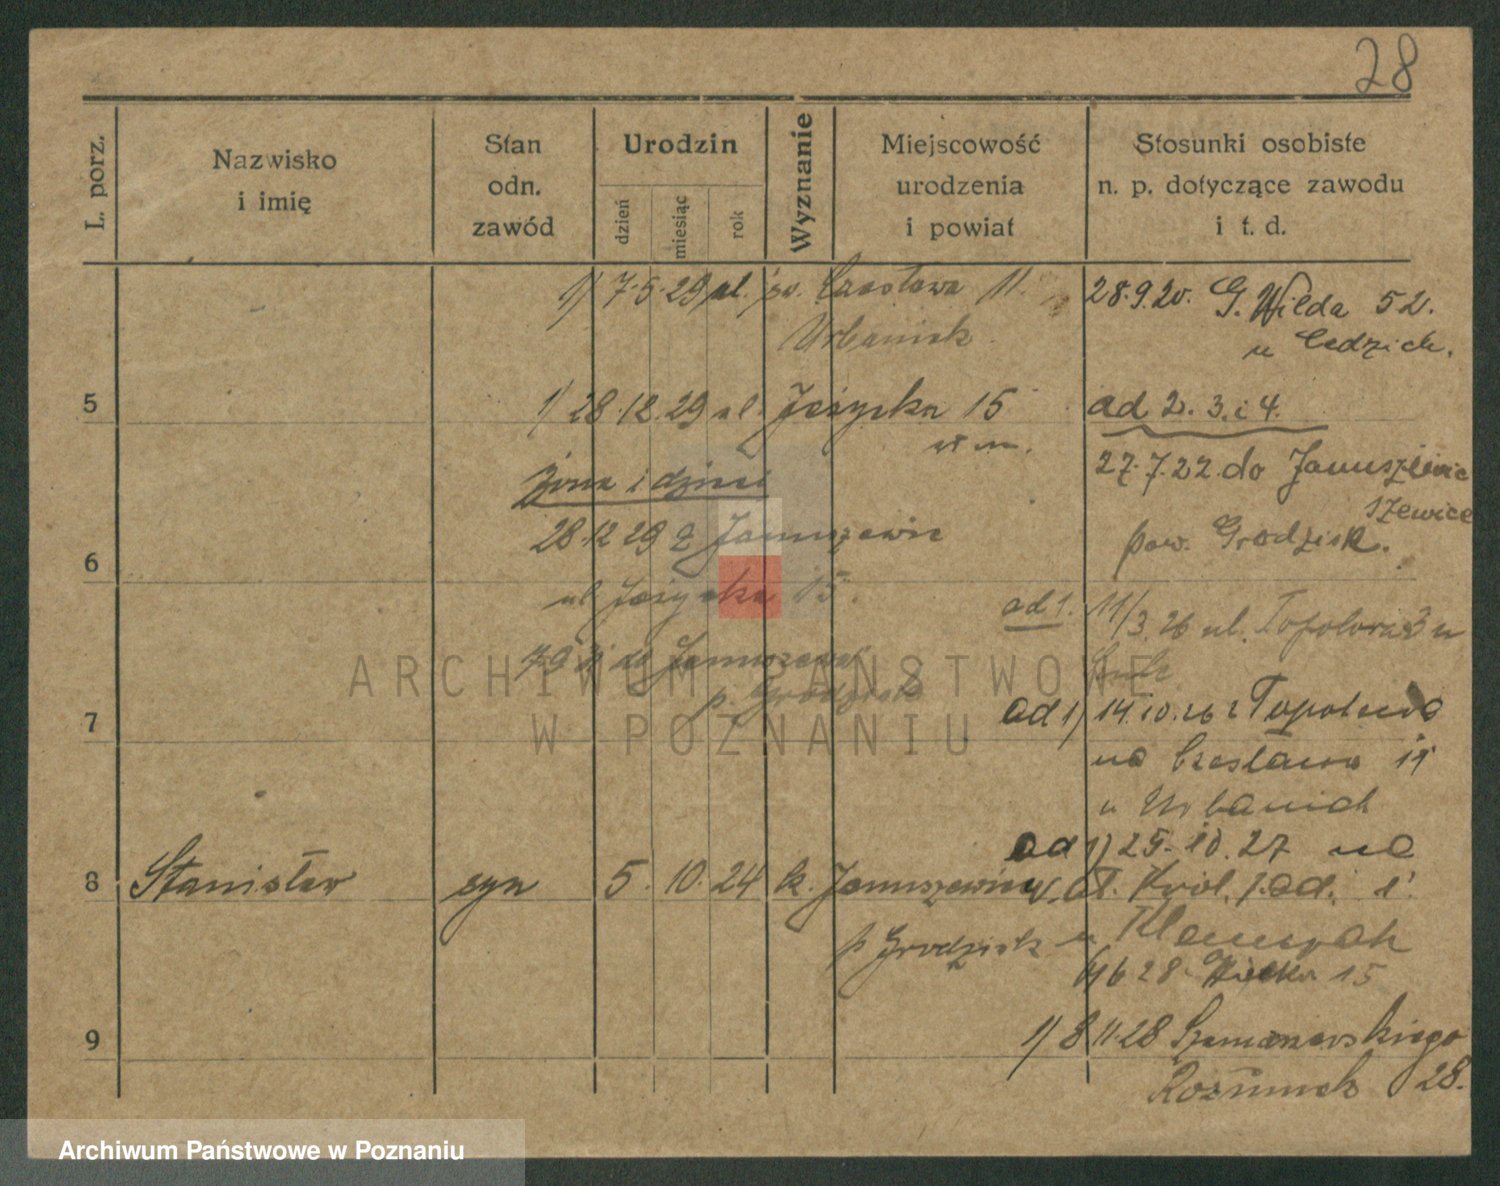 28
L. porz.
Nazwisko i imię
Stan odn. zawód
Urodzin
dzień
miesiąc
rok
Wyznanie
Miejscowość urodzenia i powiat
Stosunki osobiste n. p. dotyczące zawodu i t. d.
1) 7.5.29 ul. Czesława 11.
Urbaniak
28.9.20. G. Wilda 52.
u Cedzich.
5
1) 28.12.29 ul. Jeżycka 15
ad 2. 3. i 4.
żona i dzieci
27.7.22. do
szewice
28.12 29 z Januszewic
pow. Grodzisk.
6
ul Jeżycka 15.
ad 1. 11/3.26 ul. Topolowa 3 u
do Januszewic
p. Grodzisk
7
ad 1) 14.10.26 z Topolowa
na Czesława 11
u Urbaniak
ad 1) 25.10.27 na
8 Stanisław syn 5. 10. 24 k. Januszewice
p Grodzisk
6 28 Wielka 15
9
1) 8 11.28 Szamarzewskiego
28.
ARCHIWUM PAŃSTWOWE
W POZNANIU
Archiwum Państwowe w Poznaniu